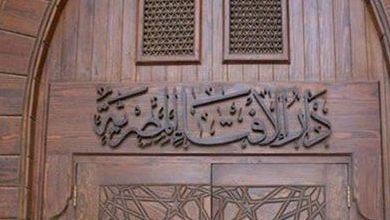 دَارُ الإِفْتَاءِ المِصْرِيَّة